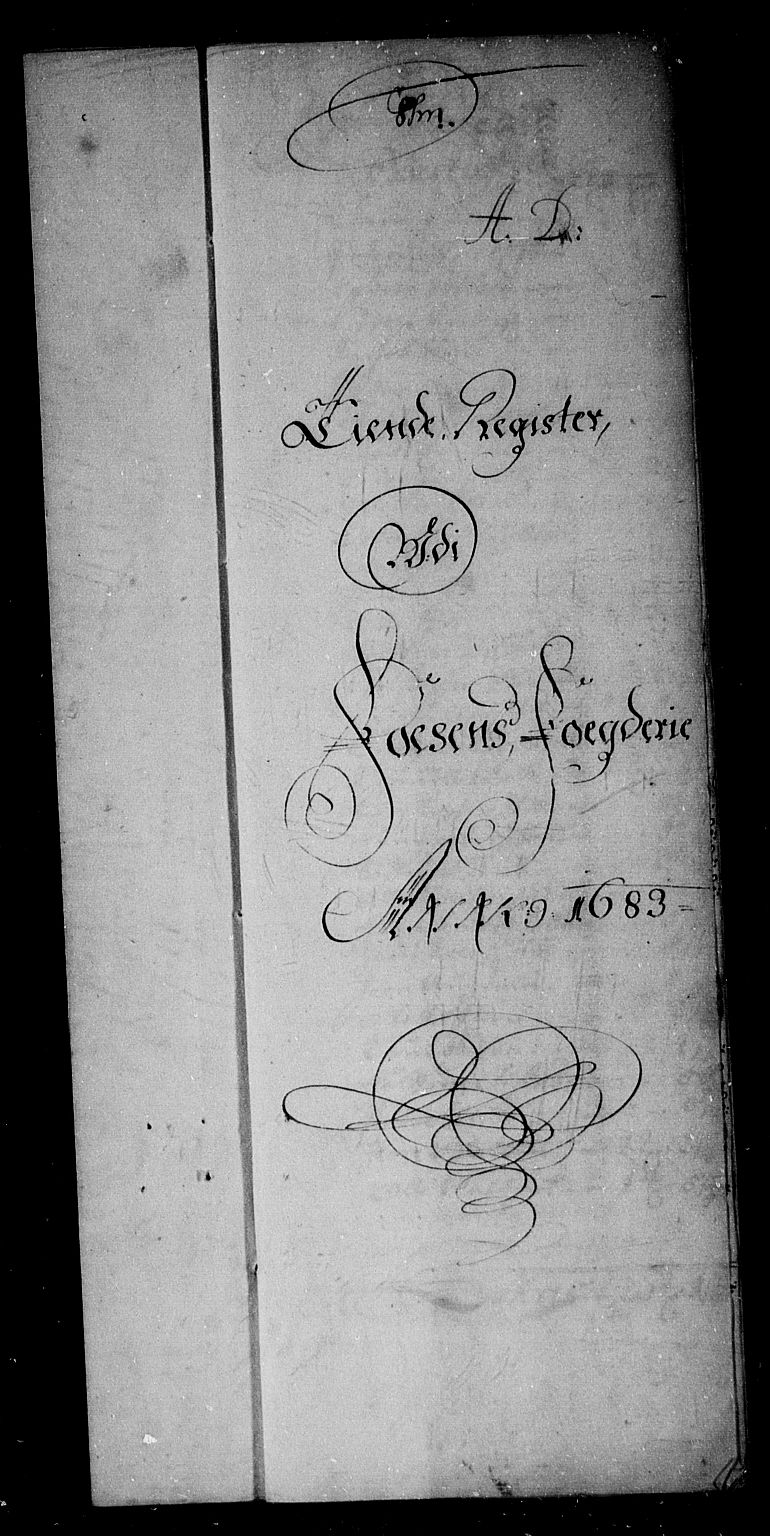 A. D:
Tiende. Register,
Udi
Foesens, Foegderie
ANNO. 1683